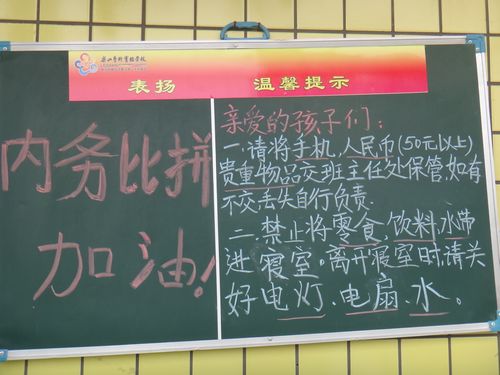 乐山学科实验学校
表扬
温馨提示
内务比拼
加油！
亲爱的孩子们：
一.请将手机，人民币(50元以上)
贵重物品交班主任处保管，如有
不交丢失自行负责.
二.禁止将零食，饮料，水带
进寝室。离开寝室时，请关
好电灯.电扇.水。